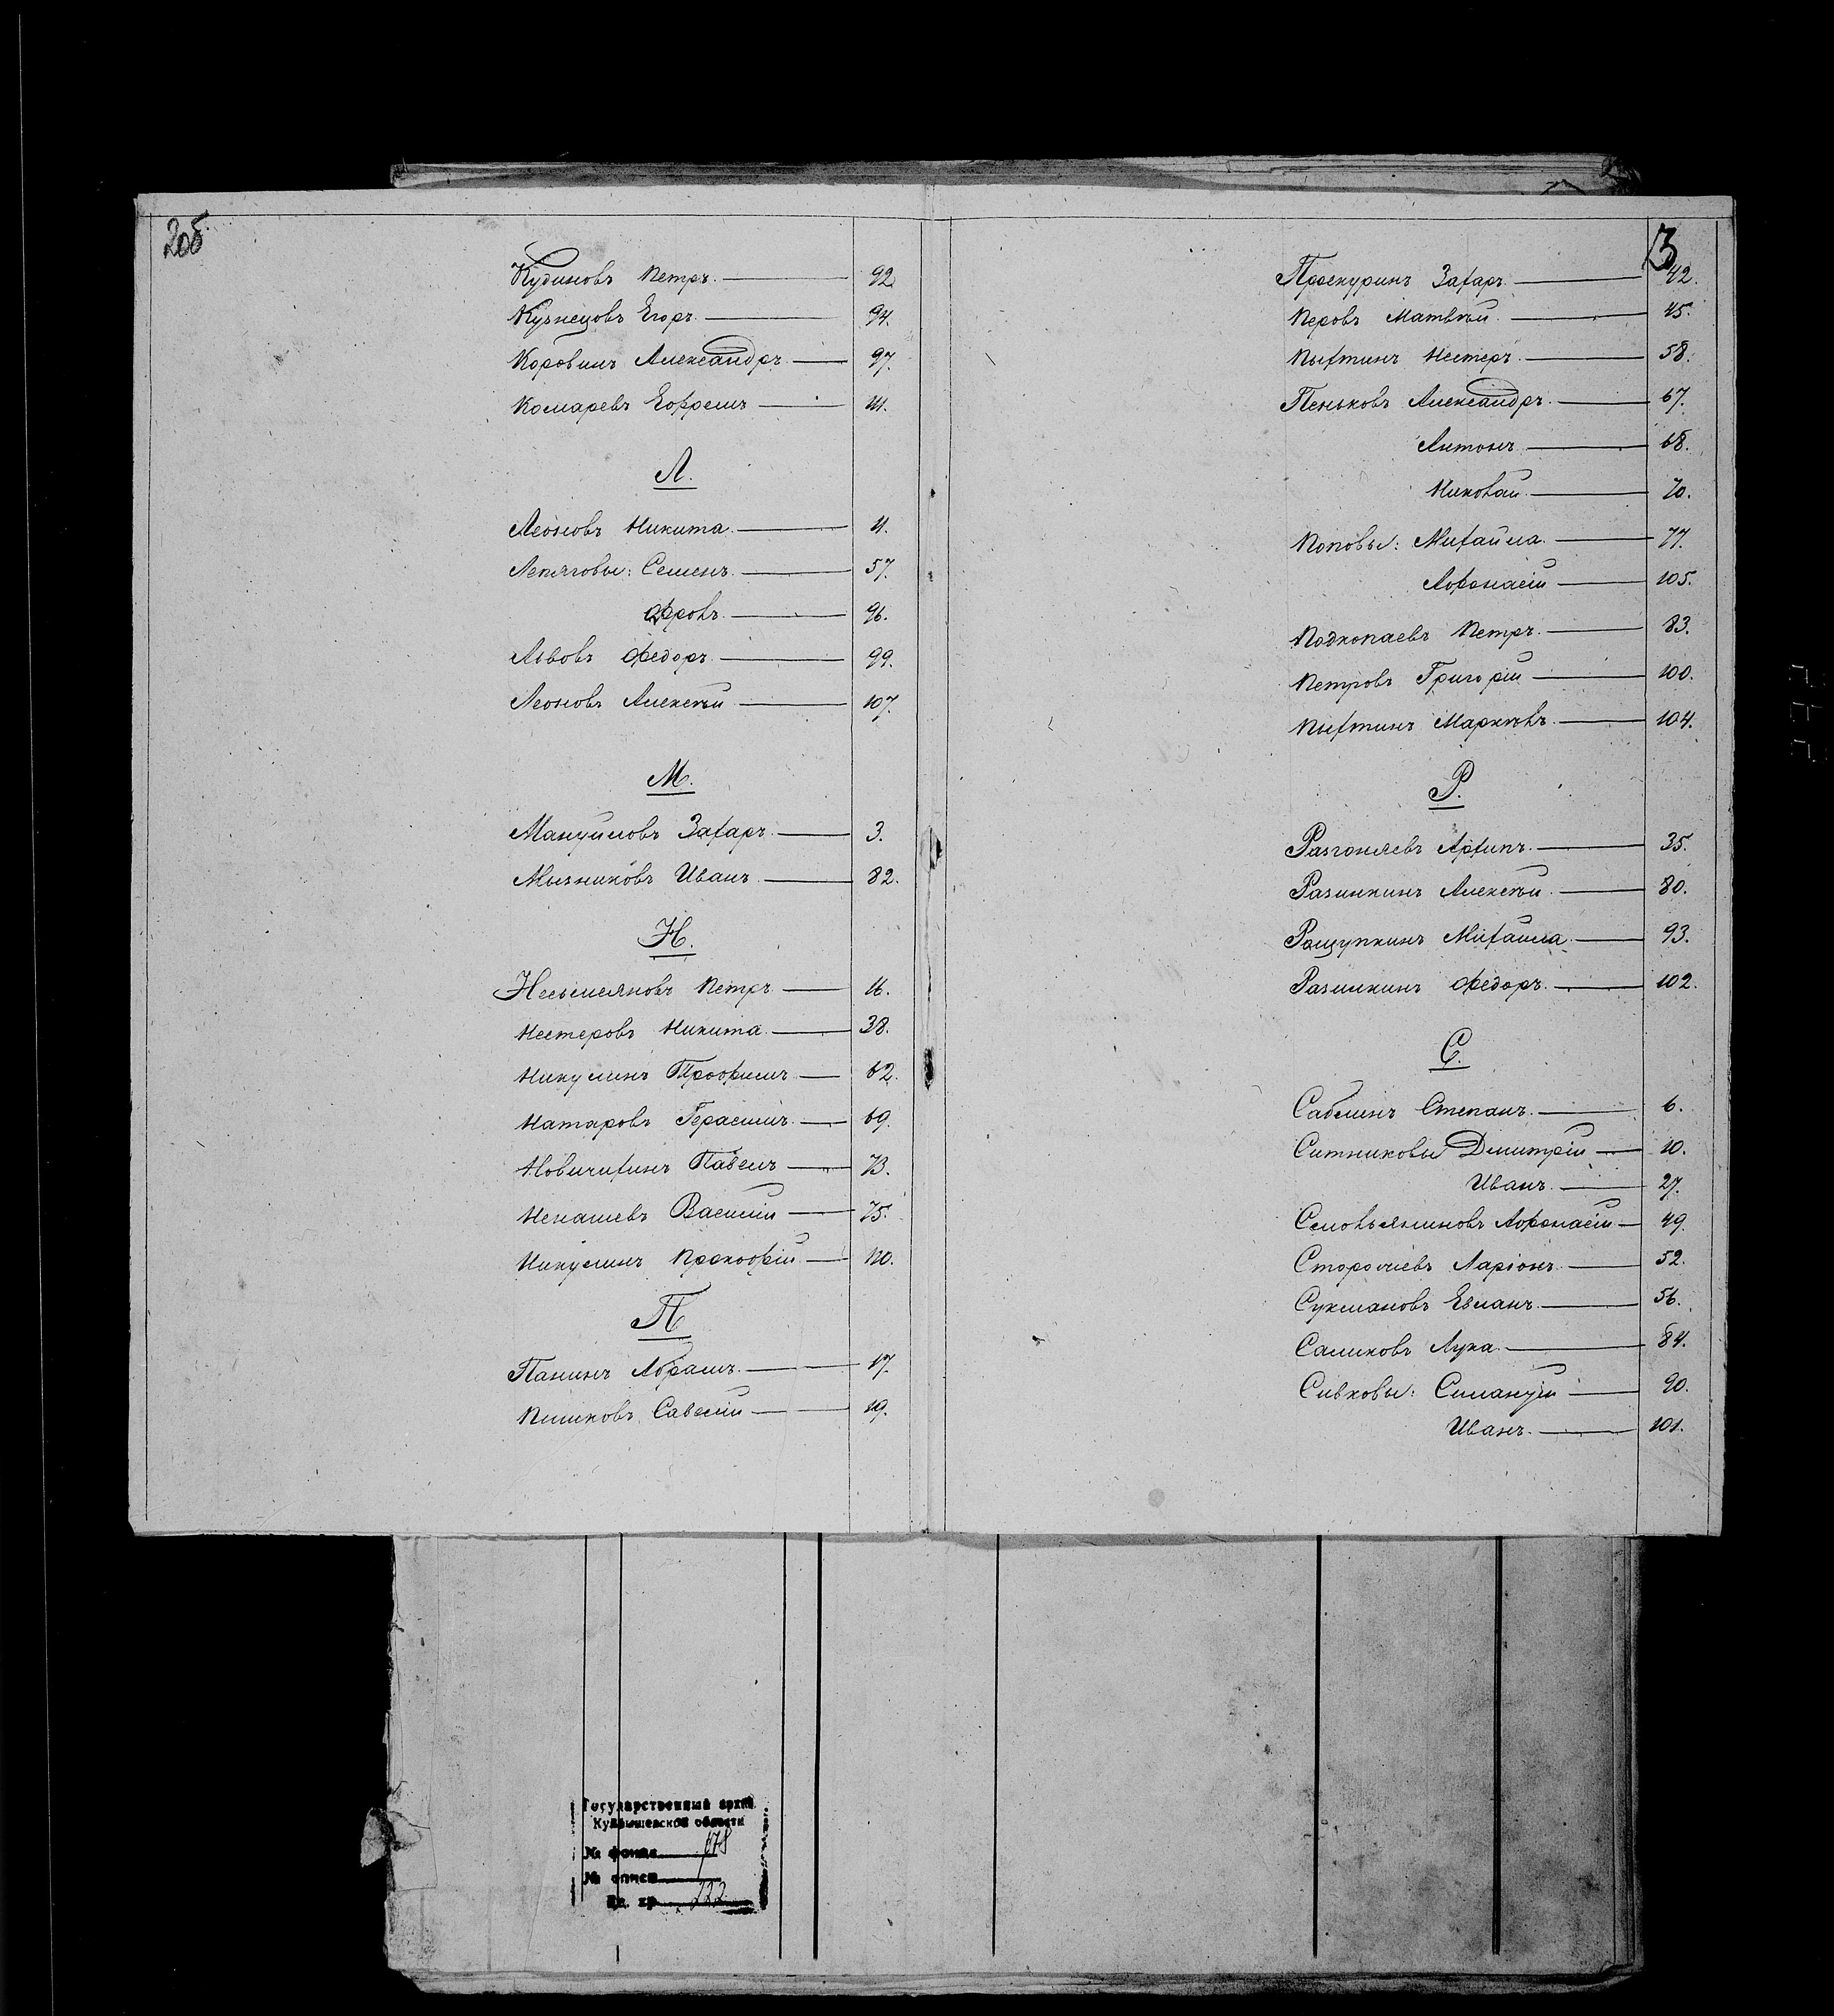 2об
Кудиновъ Петръ. 92.
Кузнецовъ Егоръ. 94.
Коровинъ Александръ 97.
Комаревъ Ефремъ 111.
Л.
Леоновъ Никита. 11.
Лепяговы: Семенъ. 57.
Фролъ. 96.
Львовъ Федоръ. 99.
Леоновъ Алексѣй 107.
М.
Мануиловъ Захаръ. 3.
Мызниковъ Иванъ. 82.
Н.
Несмеяновъ Петръ 16.
Нестеровъ Никита. 38.
Никулинъ Трофимъ. 62.
Натаровъ Герасимъ. 69.
Новичихинъ Павелъ 73.
Ненашевъ Василій 75.
Никулинъ Прокофій 110.
П
Панинъ Абрамъ. 17.
Пшиковъ Савелій 19.
3
Проскуринъ Захаръ. 42.
Перовъ Матвѣй. 45.
Пыхтинъ Нестеръ. 58.
Пеньковъ Александръ. 67.
Антонъ. 68.
Николай. 70.
Поповы: Михайла. 77.
Афонасій 105.
Подкопаевъ Петръ. 83.
Петровъ Григорій 100.
Пыхтинъ Маркелъ. 104.
Р.
Разгоняевъ Архипъ. 35.
Разинкинъ Алексѣй. 80.
Ращупкинъ Михаила. 93.
Разинкинъ Федоръ. 102.
С.
Саблинъ Степанъ. 6.
Ситниковы Дмитрій 10.
Иванъ. 27.
Афонасій 49.
Сторожевъ Ларіонъ. 52.
Сукмановъ Еманъ. 56.
Саликовъ Лука. 84.
Сивковы: Силантій 90.
Иванъ. 101.
Государственный архив
Куйбышевской области
№ фонда 178
№ описи
Ед. хр. 222